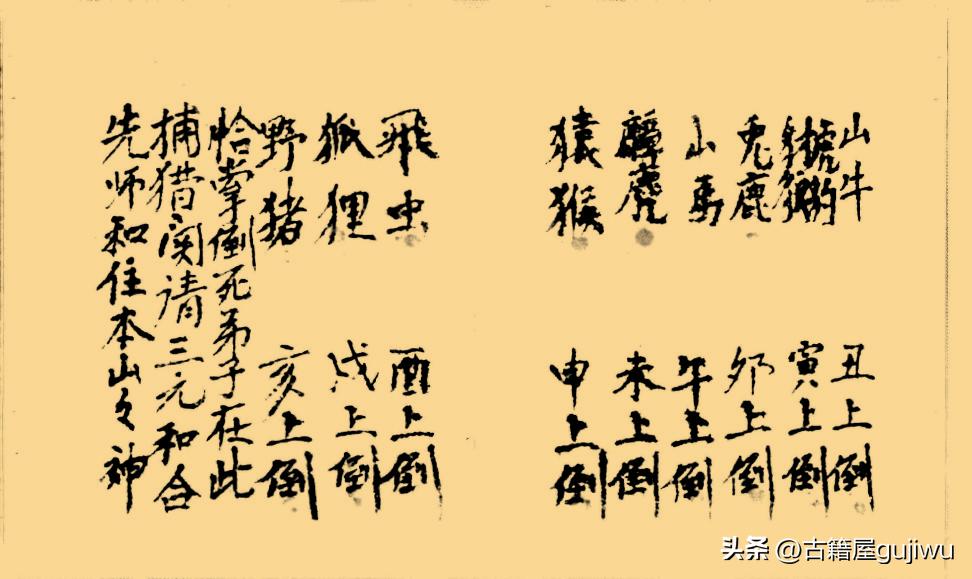 山牛 丑上倒
豹 寅上倒
兎鹿 卯上倒
山馬 午上倒
麂 未上倒
猿猴 申上倒
飛虫 酉上倒
狐狸 戌上倒
野猪 亥上倒
恰掌倒死弟子在此
捕猎関请三元和合
先师和住本山々神
头条 @古籍屋gujiwu